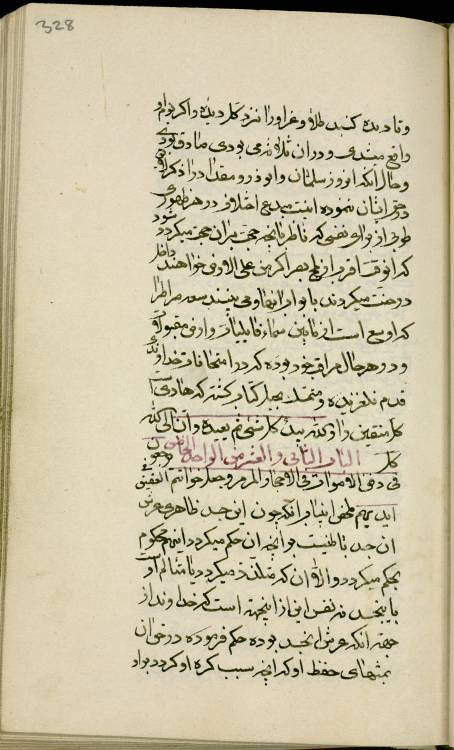 328
و تا دیده کسب طلا و غر او را نزد کل دیده و اگر بوم او
واقع میشد و در آن ثلاثه نمی بودی صادق بودی
و حال آنکه امروز سلمان و ابوذر و مقداد را ذکر
در حق ایشان نموده اینست مبدع اختلاف در هر ظهوری
طوبی از برای نفسی که ناظر بما به حجیت هر آن حجت میگردد شود
که آنوقت اقرب از لمح بصر اگر من علی الارض خواهند داخل
در جنت میگردند با نوار الهی و می بینند سعه صراط را
که اوسع است از ما بین سماء قابلیات و ارض مقبولات
و در هر حال مراقب خود بوده که در امتحانات خداوند
قدم نلغزیده و متمسک بحبل کتاب گشته که هادی است
کل متقین را و ذکر الله بیدء کل شیء ثم یعیده و ان الی الله
کل الباب الثانی و العشر من الواحد الخامس
فی دفن الاموات فی الاحجار المرمر و جعل خواتم العقیق فی
ایدیهم ملخص اینباب آنکه چون این جسد ظاهری عرش
آن جسد باطنیست و آنچه آن حکم میگردد این هم محکوم
بحکم میگردد و الا آن که متلذذ میگردد یا متألم اوست
باینجسد نه نفس این از اینجهت است که خداوند از
جهت آنکه عرش آنجسد بوده حکم فرموده در حق آن
بمنتهای حفظ او که آنچه سبب کره او گردد بر او